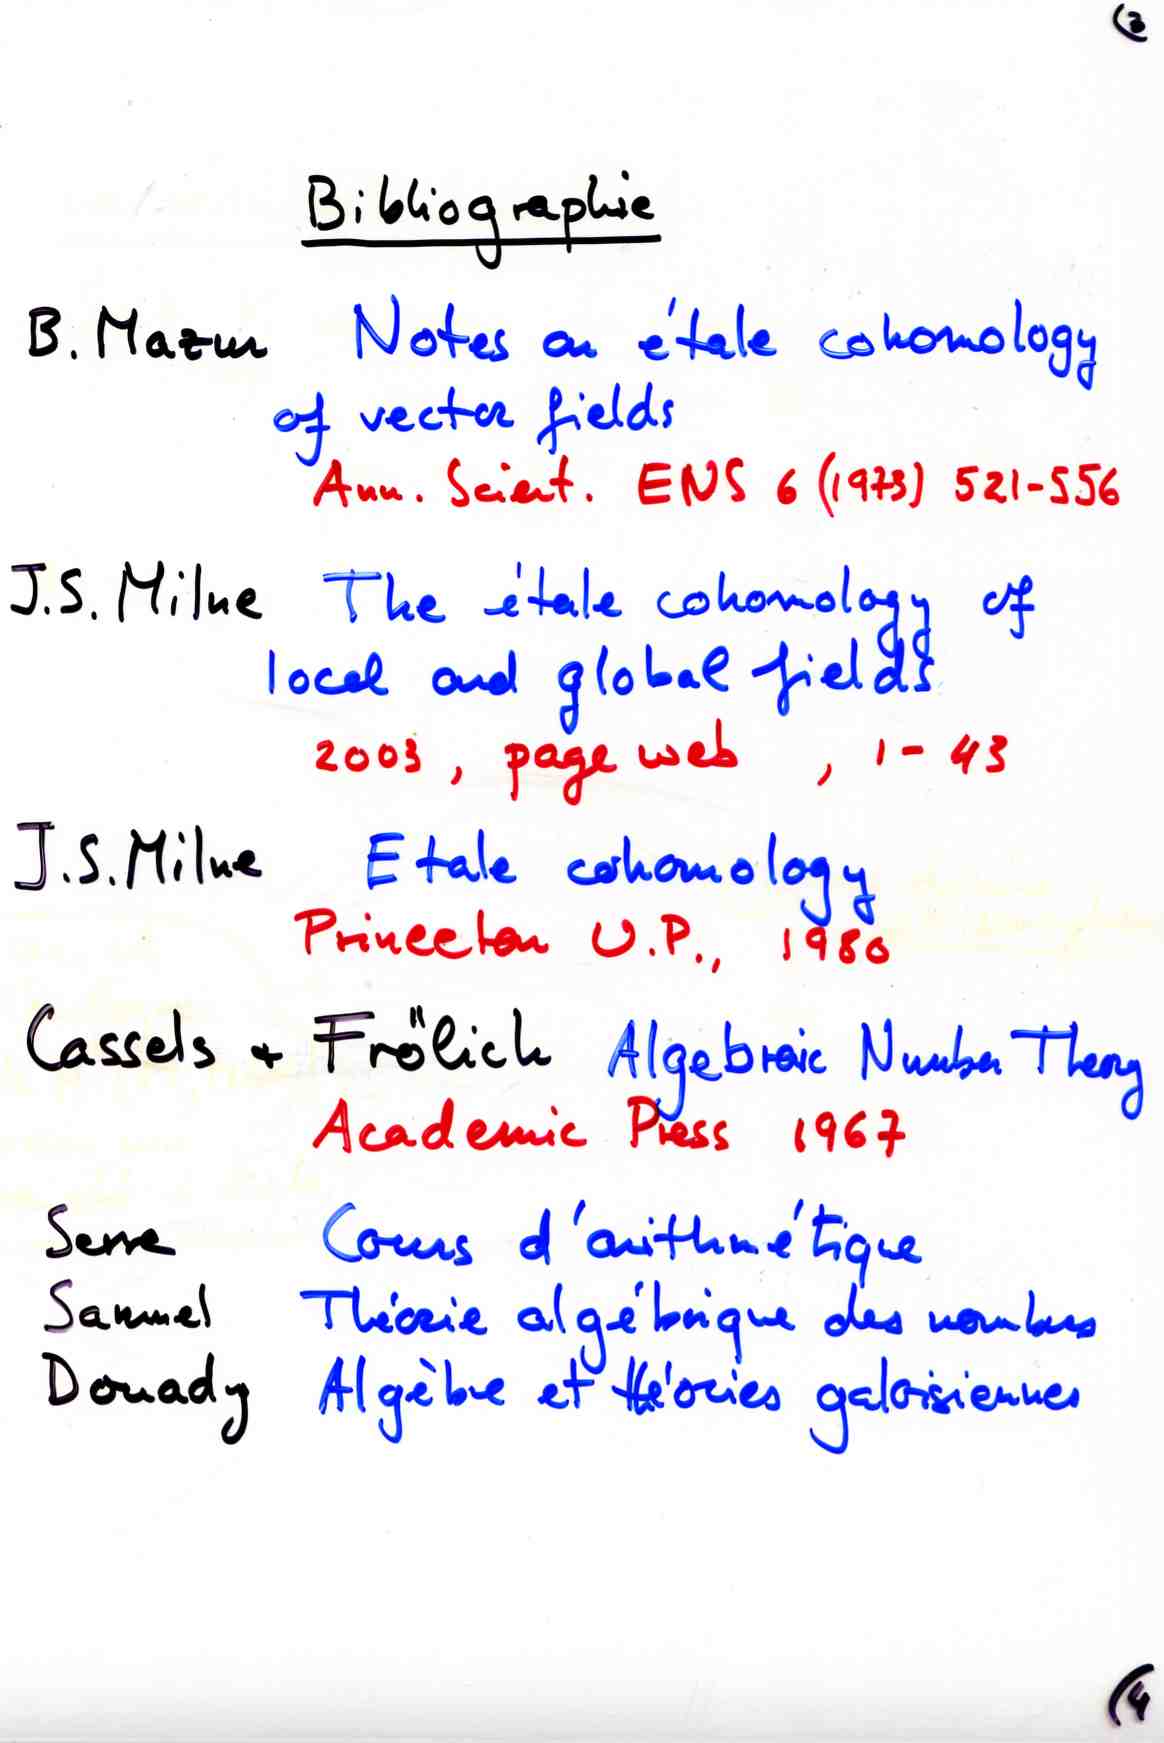 (3
Bibliographie
B. Mazur Notes on étale cohomology
of vector fields
Ann. Scient. ENS 6 (1973) 521-556
J.S. Milne The étale cohomology of
local and global fields
2003, page web , 1-43
J.S. Milne Etale cohomology
Princeton U.P., 1980
Cassels + Frölich Algebraic Number Theory
Academic Press 1967
Serre Cours d'arithmétique
Samuel Théorie algébrique des nombres
Douady Algèbre et théories galoisiennes
(4